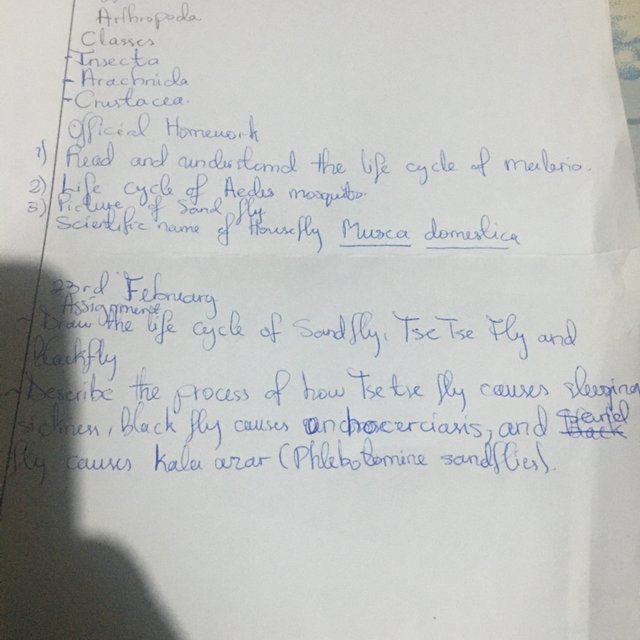 Arthropoda
Classes
- Insecta
- Arachnida
- Crustacea.
Official Homework
1) Read and understand the life cycle of malaria.
2) Life cycle of Aedes mosquito
3) Picture of Sand fly
Scientific name of Housefly Musca domestica
23rd February
Assignment
- Draw the life cycle of Sandfly, Tse Tse Fly and
blackfly
- Describe the process of how Tse tse fly causes sleeping
sickness, black fly causes onchocerciasis, and Sand
fly causes kala azar (Phlebotomine sandflies).